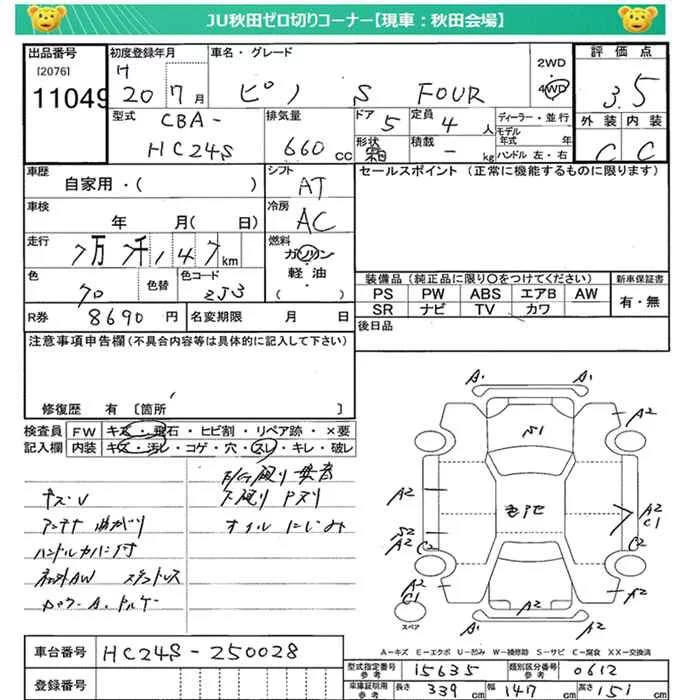 JU秋田ゼロ切りコーナー【現車：秋田会場】
出品番号 初度登録年月 車名・グレード 2WD 4WD 評価点
[2076]
11049 H 20 7月 ピノ S FOUR 3.5
型式 CBA-HC24S 排気量 660cc ドア 5 定員 4人 ディーラー・並行 外装 C 内装 C
形状 箱 積載 - kg モデル年式 年 ハンドル 左・右
車歴 自家用・( ) シフト AT セールスポイント (正常に機能するものに限ります)
車検 年 月( 日) 冷房 AC
走行 7万 7千147km 燃料 ガソリン 軽・油 ( )
色 クロ 色替 色コード ZJ3 装備品 (純正品に限り〇をつけてください) 新車保証書
PS PW ABS エアB AW 有・無
SR ナビ TV カワ
R券 8690円 名変期限 月 日 後日品
注意事項申告欄 (不具合内容等は具体的に記入して下さい)
修復歴 有 [箇所 ]
検査員 FW キズ・飛石・ヒビ割・リペア跡・×要
記入欄 内装 キズ・汚レ・コゲ・穴・スレ・キレ・破レ
キズU
アンテナ曲がり
ハンドルカバー付
オイルにじみ
A1 A1
A2 S1 A2
A2 A2
C1
S2
A2 C2 C2
A2
C1 A2 A2
スペア
A－キズ E－エクボ U－凹み W－補修跡 S－サビ C－腐食 XX－交換済
車台番号 HC24S-250028
登録番号
型式指定番号 参考 15635 類別区分番号 参考 0612
車庫証明用 参考 長さ 339cm 幅 147cm 高さ 151cm